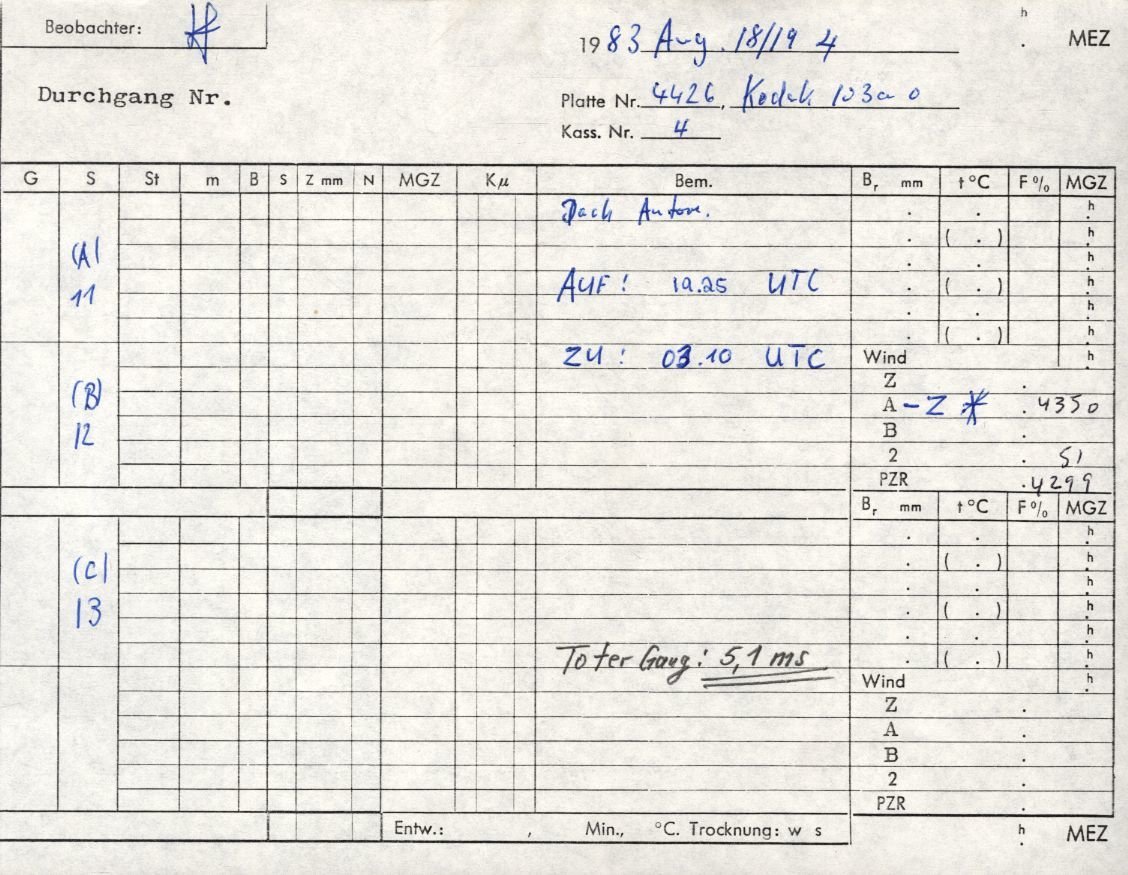 Beobachter:
h
1983 Aug. 18/19 4
. MEZ
Durchgang Nr.
Platte Nr. 4426, Kodak 103a o
Kass. Nr. 4
G S St m B S Z mm N MGZ Kμ Bem. Br mm t °C F% MGZ
Dach Autom. . . h
. ( . ) h
(A) . . h
11 AUF! 19.25 UTC . ( . ) h
. . h
. ( . ) h
ZU! 03.10 UTC Wind h
Z .
(B) A - Z * .4350
12 B .
2 . 51
PZR .4299
Br mm t °C F% MGZ
. . h
(C) . ( . ) h
. . h
13 . ( . ) h
. . h
Toter Gang: 5,1 ms . ( . ) h
Wind h
Z .
A .
B .
2 .
PZR .
Entw.: , Min., °C. Trocknung: w s h
. MEZ